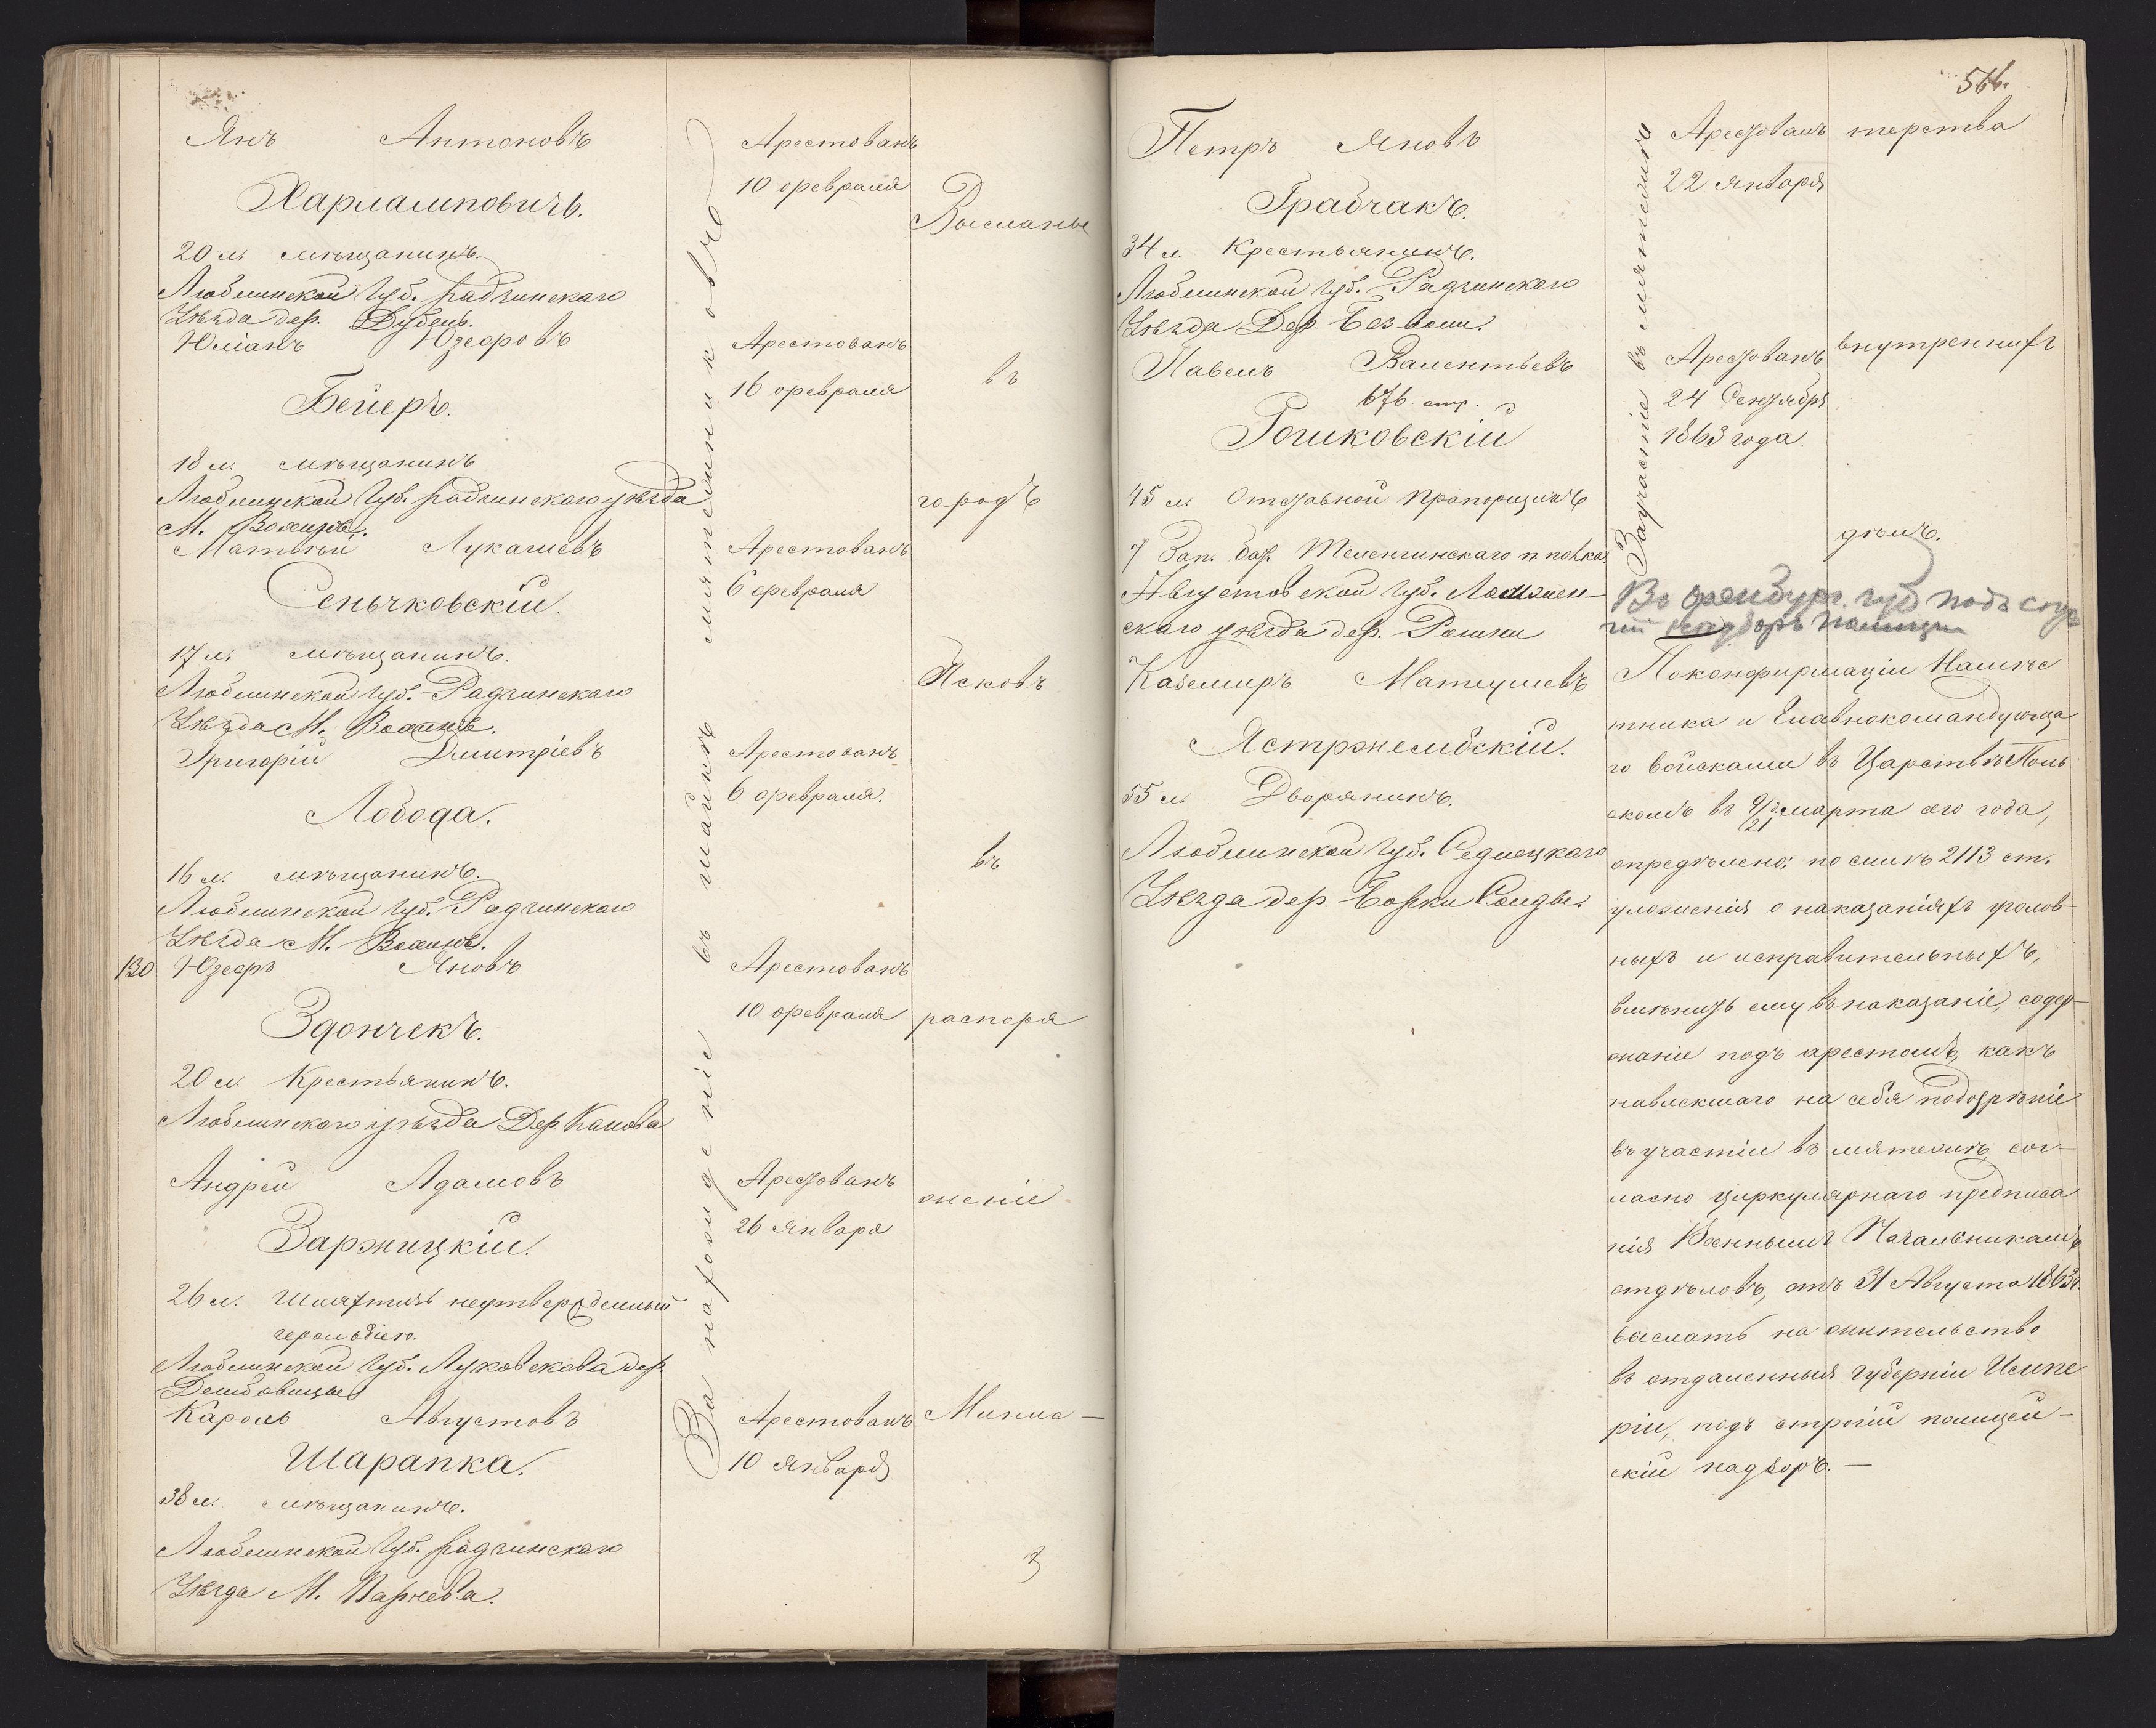 Янъ Антоновъ
Харлампович​ъ.
20 л. мѣщанинъ.
Люблинской Губ. Радзинскаго
Уѣзда дер. Дубень.
Юліанъ Юзефовъ
Бейеръ.
18 л. мѣщанинъ
Люблинской Губ. Радзинскаго уѣзда
М. Вохинъ.
Матвѣй Лукашевъ
Сеньчковскій.
17 л. мѣщанинъ.
Люблинской губ. Радзинскаго
Уѣзда М. Вохинъ.
Григорій Дмитріевъ
Лобода.
16 л. мѣщанинъ.
Люблинской Губ. Радзинскаго
Уѣзда М. Вохинъ.
130 Юзефъ Яновъ
Здончекъ.
20 л. Крестьянинъ.
Люблинскаго уѣзда Дер.
Андрей Адамовъ
Заржицкій.
26 л. Шляхтичь неутвержденный
герольдіею.
Люблинской Губ. дер.
Дембовицы
Кароль Августовъ
Шарапка.
38 л. мѣщанинъ.
Люблинской Губ. Радзинскаго
Уѣзда М. Парчева.
За нахожденіе въ шайкѣ мятежниковъ
Арестованъ
10 февраля
Арестованъ
16 февраля
Арестованъ
6 февраля
Арестованъ
6 февраля.
Арестованъ
10 февраля
Арестованъ
26 Января
Арестованъ
10 Января
Высланы
въ
городъ
Псковъ
въ
распоря
женіе
Минис-
56
Петръ Яновъ
Грабчакъ.
34 л. Крестьянинъ.
Люблинской Губ. Радзинскаго
Уѣзда Дер.
Павелъ Валентьевъ
676. стр.
Рошковскій
45 л. Отставной Прапорщикъ
7 Зап. бат. Тенгинскаго п. полка
Августовской Губ. Ломжен-
скаго уѣзда дер.
Казимиръ Матеушевъ
Ястржембскій.
55 л. Дворянинъ.
Люблинской Губ. Седлецкаго
Уѣзда дер. Борки
За участіе въ мятежѣ
Арестованъ
22 Января
Арестованъ
24 Сентября
1863 года.
терства
внутреннихъ
дѣлъ.
Въ Оренбург. губ подъ стро
гій надзоръ полиции
По конфирмаціи Намѣс
тника и Главнокомандующа
го войсками въ Царствѣ Поль
скомъ въ 9/21 марта сего года,
опредѣлено: по силѣ 2113 ст.
уложенія о наказаніяхъ уголов-
ныхъ и исправительныхъ,
вмѣнить ему въ наказаніе, содер-
жаніе подъ арестомъ, какъ
навлекшаго на себя подозрѣніе
въ участіи въ мятежѣ, сог-
ласно циркулярнаго предписа
нія Военнымъ Начальникамъ
отдѣловъ, отъ 31 Августа 1863 г.
выслать на жительство
въ отдаленныя губерніи Импе
ріи, подъ строгій полицей-
скій надзоръ.—